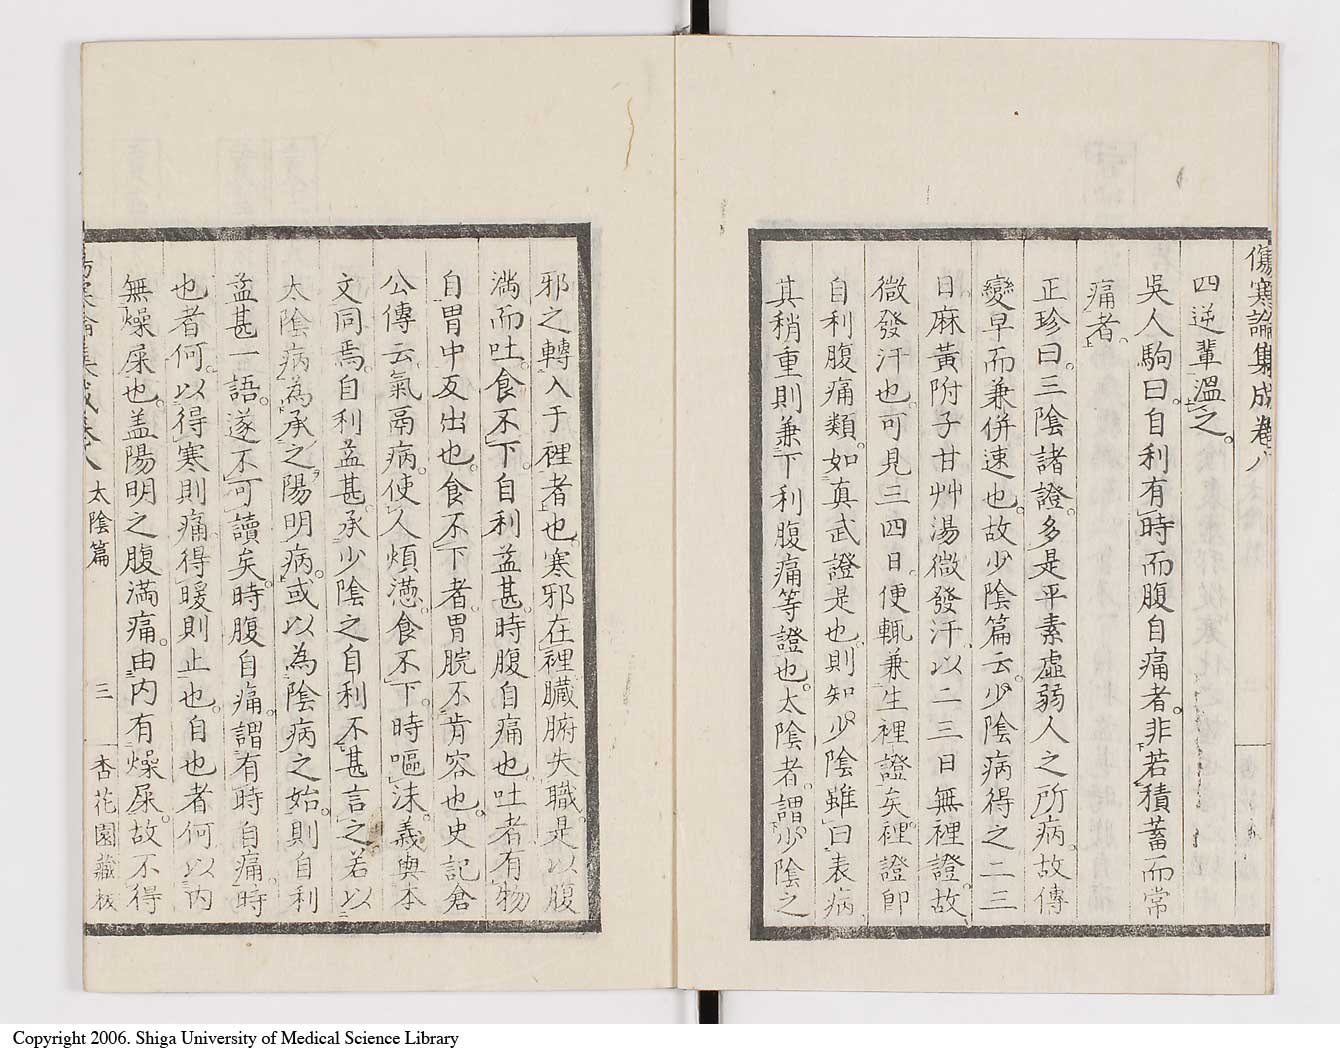 傷寒論集成卷八
四逆輩溫之。
吳人駒曰。自利有時而腹自痛者。非若積蓄而常
痛者。
正珍曰。三陰諸證。多是平素虛弱人之所病。故傳
變早而兼併速也。故少陰篇云。少陰病得之二三
日。麻黃附子甘艸湯微發汗。以二三日無裡證。故
微發汗也。可見三四日。便輒兼生裡證矣。裡證即
自利腹痛類。如真武證是也。則知少陰雖曰表病
其稍重則兼下利腹痛等證也。太陰者。謂少陰之
邪之轉入于裡者也。寒邪在裡。臟腑失職。是以腹
滿而吐。食不下。自利益甚。時腹自痛也。吐者有物
自胃中反出也。食不下者。胃脘不肯容也。史記倉
公傳云。氣鬲病。使人煩懣。食不下。時嘔沫。義與本
文同焉。自利益甚。承少陰之自利不甚言之。若以
太陰病為承之陽明病。或以為陰病之始。則自利
益甚一語。遂不可讀矣。時腹自痛。謂有時自痛。時
也者何。以得寒則痛。得暖則止也。自也者何。以內
無燥屎也。蓋陽明之腹滿痛。由內有燥屎。故不得
傷寒論集成卷八 太陰篇 三 杏花園藏板
Copyright 2006. Shiga University of Medical Science Library